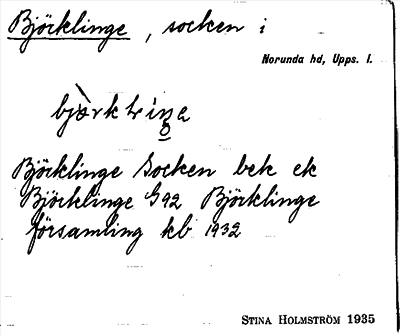 Björklinge, socken i
Norunda hd, Upps. l.
bjὰrktriŋa
Björklinge Socken bek ek
Björklinge G92 Björklinge
församling kb 1932
STINA HOLMSTRÖM 1935